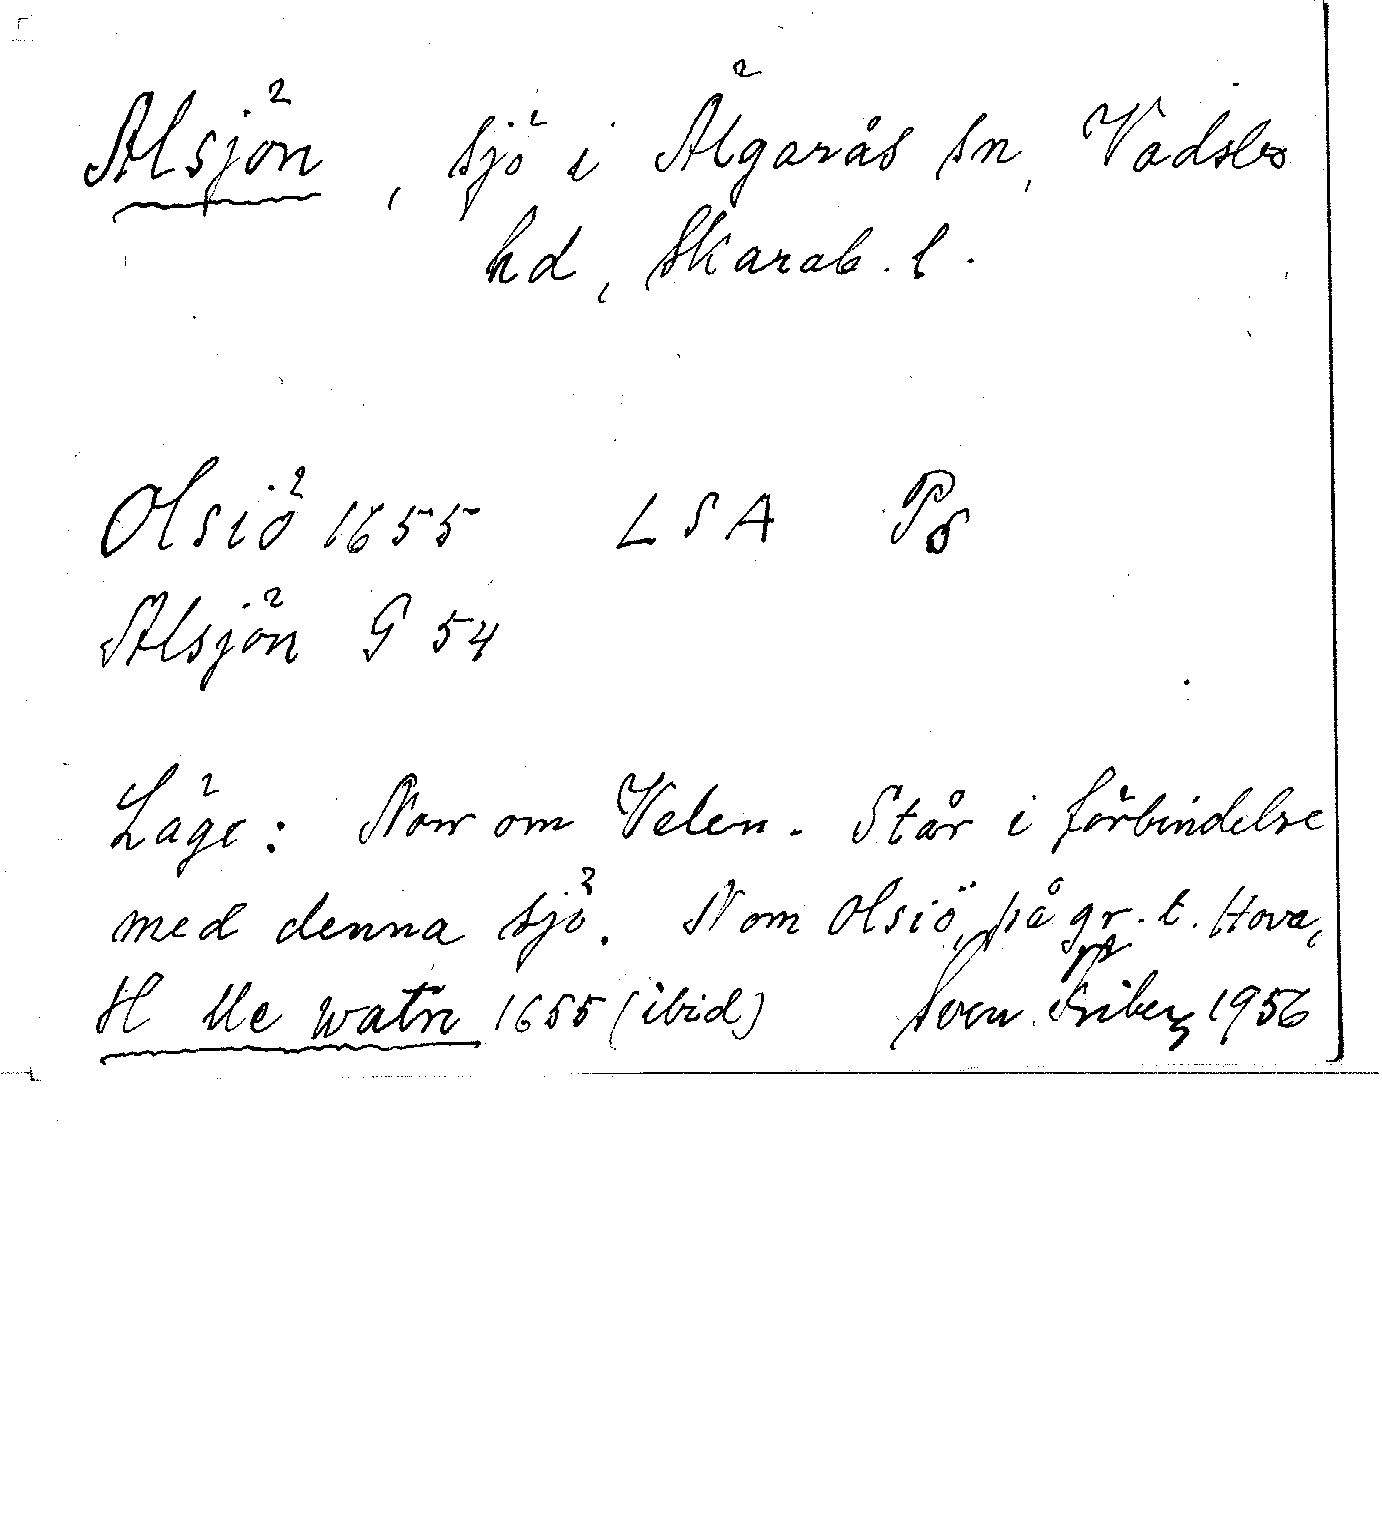 Alsjön, sjö i Älgarås sn, Vadsbo
hd, Skarab. l.
Olsiö 1655 LSA P8
Alsjön G 54
Läge: Norr om Velen. Står i förbindelse
med denna sjö. N om Olsiö, på gr. t. Hova,
H lle watn 1655 (ibid) Sven Friberg 1956